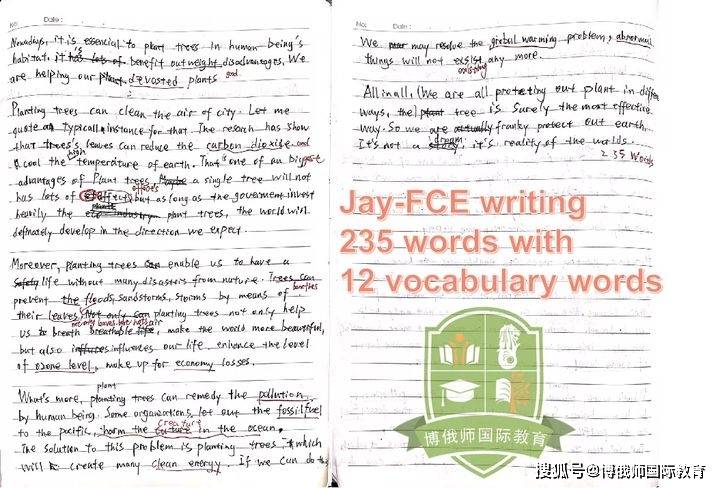 No: Date:
Nowadays, it is essencial to plant trees in human being's
habitat, it is benefit outweight disadvantages. We
are helping our devosted plants
Planting trees can clean the air of city. Let me
quote a typical instance for that. The reseach has show
that trees's leaves can reduce the carbon dioxise and
cool the high temperature of earth. That is one of an biggest
advantages of Plant trees, a single tree will not
has lots of effects, but as long as the goverment invest
heavily the plant trees, the world will
definately develop in the direction we expect.
Moreover, planting trees enable us to have a
life without many disasters from nature. Trees can
prevent the floods, sandstorms, storms by means of
their leaves, branches planting trees not only help
us to breath air, make the world more beautiful,
but also influences our life, enhence the level
of ozone level, make up for economy losses.
What's more, planting trees can remedy the pollution
by human being. Some organizations, let out the fossil fuel
to the pacific, harm the creature in the ocean.
The solution to this problem is planting trees which
will create many clean energy. If we can do this
No: Date:
We may resolve the global warming problem, abnormal
things will not existing any more.
All in all, We are all protecting out plant in differ
ways, the tree is surely the most effective
way. So we are franky protect out earth.
It's not a dream, it's reality of the worlds.
235 words
Jay-FCE writing
235 words with
12 vocabulary words
博俄师国际教育
搜狐号@博俄师国际教育